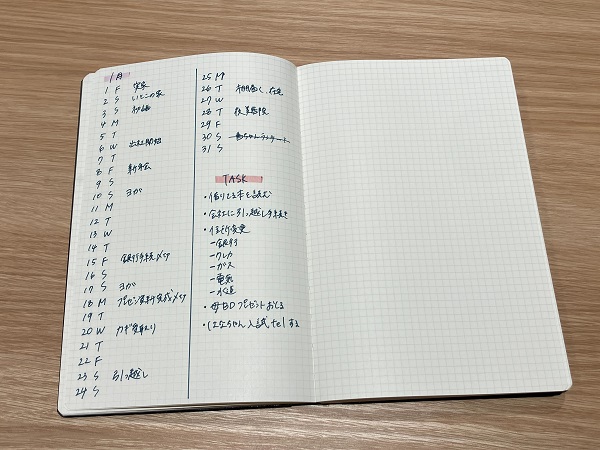 1月
1 F 実家
2 S いとこの家
3 S 初詣
4 M
5 T
6 W 出社開始
7 T
8 F 新年会
9 S
10 S ヨガ
11 M
12 T
13 W
14 T
15 F 銀行手続〆切
16 S
17 S ヨガ
18 M プレゼン資料完成〆切
19 T
20 W カギ受取り
21 T
22 F
23 S 引っ越し
24 S
25 M
26 T 在宅
27 W
28 T 夜 美容院
29 F
30 S ランチ
31 S
TASK
・借りてる本を読む
・会社に引っ越し手続き
・住所変更
－銀行
－クレカ
－ガス
－電気
－水道
・母BDプレゼントおくる
・はなちゃん入試telする